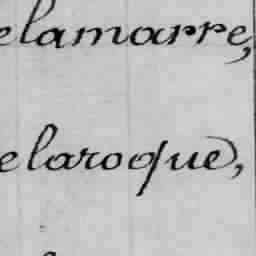 elamarre,
elaroque,